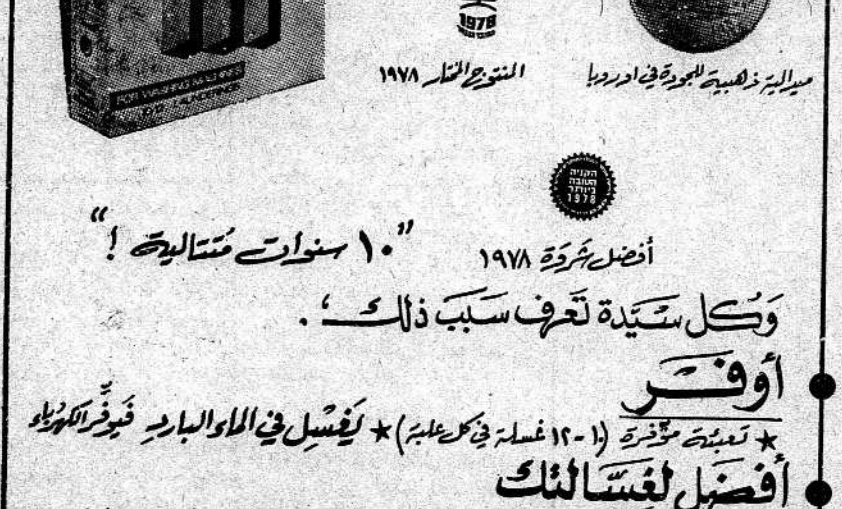 1978
FOR WASHING MACHINES
ميدالية ذهبية للجودة في اوروبا
المنتوج المختار ١٩٧٨
הקניה
הטובה
ביותר
1978
أفضل شَروَةِ ١٩٧٨
"١٠ سنوات مُتتالية !"
وَكُل سَيّدة تَعرف سَبَبَ ذلك .
أوفَر
★ تعبئة موَفرة (١٠-١٢ غسلة في كل علبة) ★ يَغسِل في الماء الباردِ فيوفِّر الكهرَباء
أفضَل لغسَّالتك